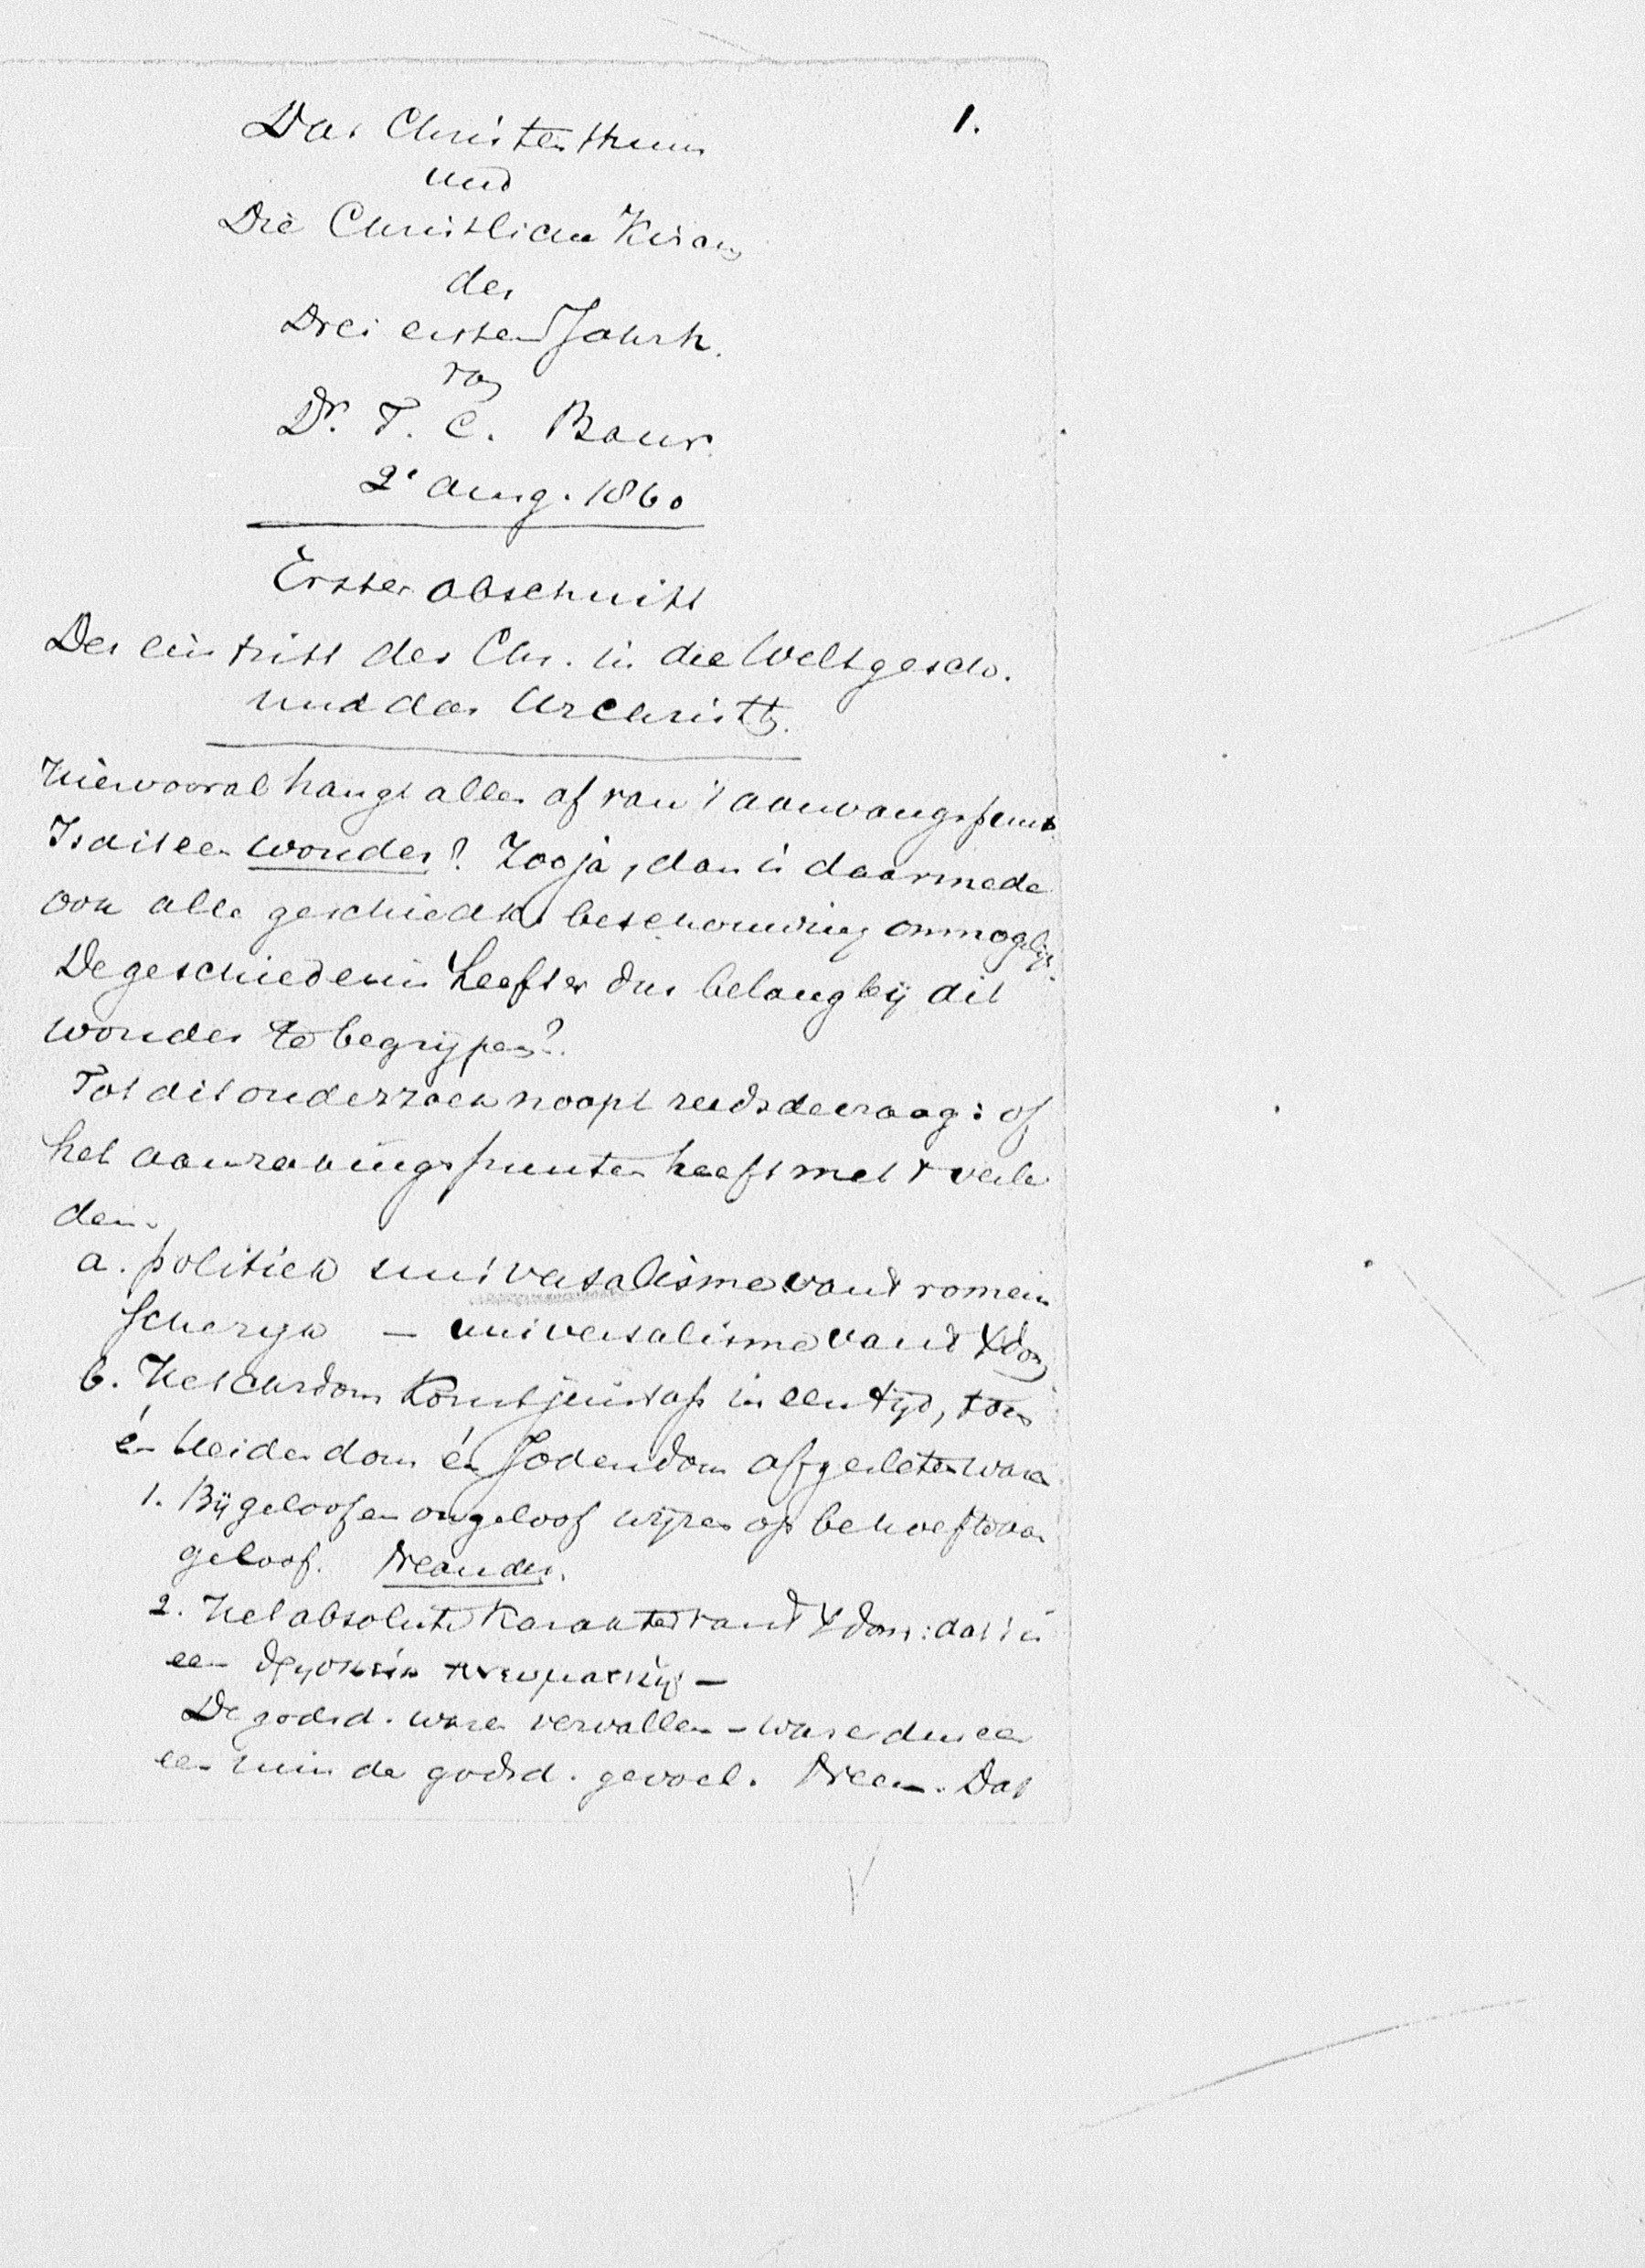 1.
Das Christenthum
und
Die Christliche Kirche
der
Drei ersten Jahrh.
von
Dr. F. C. Baur.
2e Aug. 1860
Erster Abschnitt
Der eintritt des Chr. in die Weltgesch.
und das Urchristth.
Hiervooral hangt alles af van 't aanvangspunt
Is dit een wonder? Zoo ja, dan is daarmede
ook alle geschiedk. beschouwing onmogelijk.
De geschiedenis heeft er dus belang bij dit
wonder te begrijpen?
Tot dit onderzoek noopt reeds de vraag: of
het aanrakingspunten heeft met 't verle
den.
a. politiek universalisme van 't romein
sche rijk — universalisme van 't Xdom
b. Het Chrdom komt juist op in een tijd, toen
én heidendom én Jodendom afgesleten waren
1. Bijgeloof en ongeloof wijzen op behoefte aan
geloof. Neander.
2. Het absolute karakter van 't Xdom: dat is
een
De godsd. waren vervallen – was er dus een
een minder godsd. gevoel. Neen. Dat